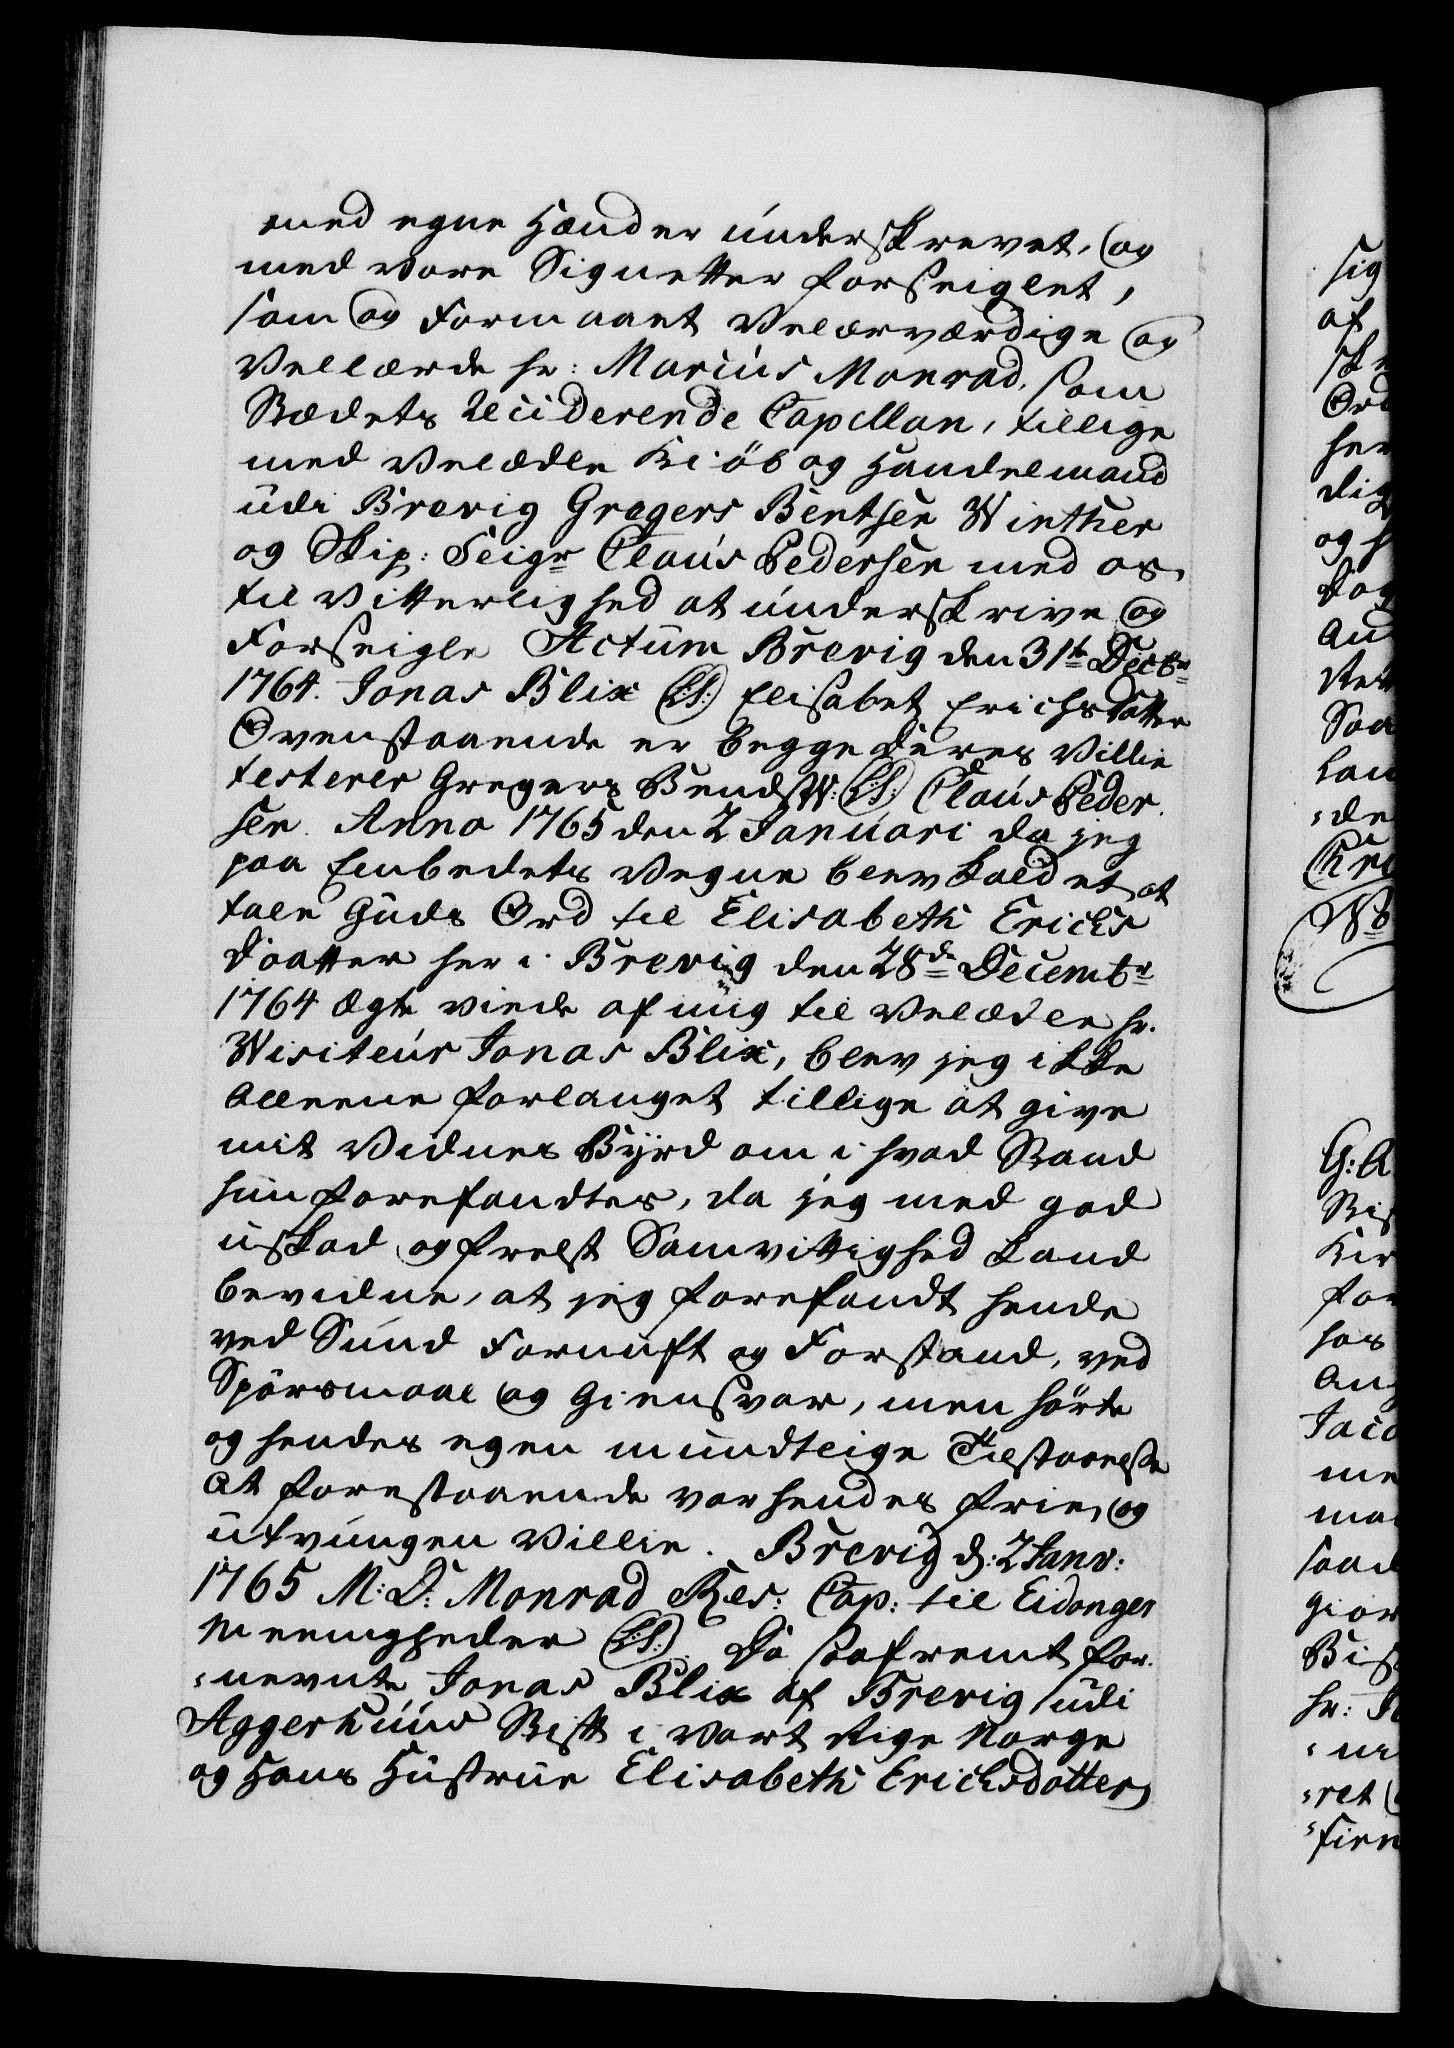 med egne Hænder underskrevet, og
med vore Signetter forseiglet,
som og Formaaet Velærværdige og
Vellærde hr: Marius Monrad, som
Stædets Reciderende Capellan, tillige
med Velædle Kiöb og Handelmand
udi Brevig Gregers Bentsen Winther
og Skip: Seigr Claus Pedersen med os
til Vitterlighed at underskrive og
Forseigle Actum Brevig den 31te Decbr
1764. Jonas Blix (L:S:) Elisabet Erichsdatter
Ovenstaaende er begge deres Villie
testerer Gregers Bends: W: (L:S:) Claus Peder
sen. Anno 1765 den 2 Januari da jeg
paa Embedets Vegne blev kaldet at
tale Guds Ord til Elisabeth Erichs
Doatter her i Brevig den 28de Decembr
1764 Ægte viede af mig til Velædle hr.
Wisiteur Jonas Blix, blev jeg ikke
alleene forlanget tillige at give
mit Vidnes Byrd om i hvad Stand
hun forefandtes, da jeg med god
uskad og frelst Samvittighed kand
bevidne, at jeg forefandt hende
ved Sund Fornuft og Forstand, ved
Spörsmaal og Giensvar, men hörte
og hendes egen mundtlige Tilstaaelse
at forestaaende var hendes frie, og
utvungen Villie. Brevig d: 2 Janv:
1765 M: D: Monrad Res: Cap: til Eidanger
Meenigheder (L:S:) Da saafremt for-
nevnte Jonas Blix af Brevig udi
Aggerhuus Stift i Vort Rige Norge
og Hans Hustrue Elisabeth Erichsdatter
sig
af
Ord
her
dig
og
Saa
de
No
G: A
Kir
for
hos
Jac
me
ma
saad
gior
Bis
hr:
ret